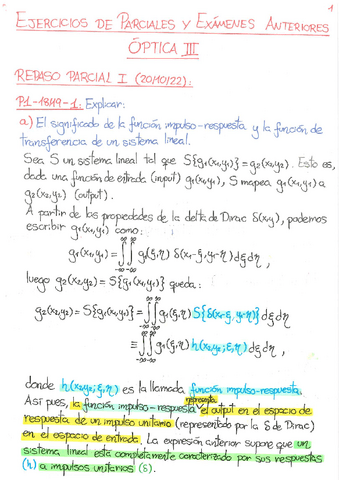 1
EJERCICIOS DE PARCIALES Y EXÁMENES ANTERIORES
ÓPTICA III
REPASO PARCIAL I (20/10/22):
P1-18M9-1. Explicar:
a) El significado de la función impulso-respuesta y la función de
transferencia de un sistema lineal.
Sea S un sistema lineal tal que S{g₁(x₁,y₁)} = g₂(x₂,y₂). Esto es,
dada una función de entrada (input) g₁(x₁,y₁), S mapea g₁(x₁,y₁) a
g₂(x₂,y₂) (output).
A partir de las propiedades de la delta de Dirac δ(x,y), podemos
escribir g₁(x₁,y₁) como:
g₁(x₁,y₁) = ∫_{-∞}^{∞} ∫_{-∞}^{∞} g₁(ξ,η) δ(x₁-ξ, y₁-η) dξ dη,
luego g₂(x₂,y₂) = S{g₁(x₁,y₁)} queda:
g₂(x₂,y₂) = S{g₁(x₁,y₁)} = ∫_{-∞}^{∞} ∫_{-∞}^{∞} g₁(ξ,η) S{δ(x₁-ξ, y₁-η)} dξ dη
≡ ∫_{-∞}^{∞} ∫_{-∞}^{∞} g₁(ξ,η) h(x₂,y₂;ξ,η) dξ dη,
donde h(x₂,y₂;ξ,η) es la llamada función impulso-respuesta.
Así pues, la función impulso-respuesta representa el output en el espacio de
respuesta de un impulso unitario (representado por la δ de Dirac)
en el espacio de entrada. La expresión anterior supone que un
sistema lineal está completamente caracterizado por sus respuestas
(h) a impulsos unitarios (δ).